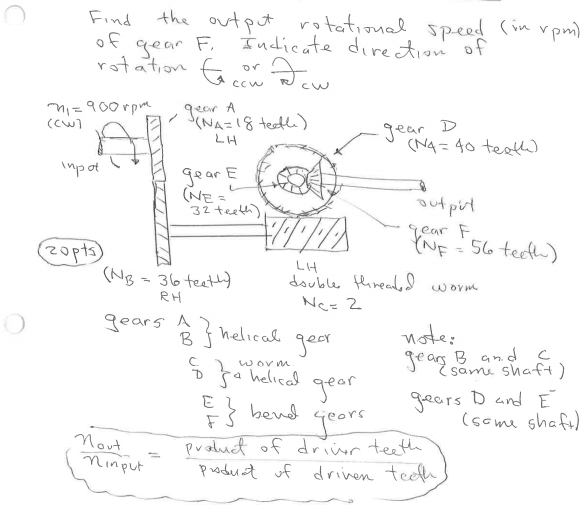 Find the output rotational speed (in rpm)
of gear F. Indicate direction of
rotation ccw or cw
n1 = 900 rpm
(CCW)
input
gear A
(NA = 18 teeth)
LH
gear D
(N4 = 40 teeth)
gear E
(NE =
32 teeth)
output
gear F
(NF = 56 teeth)
20pts
(NB = 36 teeth)
RH
LH
double threaded worm
Nc = 2
gears A
B } helical gear
C
D } worm
& helical gear
E
F } bevel gears
note:
gears B and C
(same shaft)
gears D and E
(same shaft)
nout / ninput = product of driver teeth / product of driven teeth